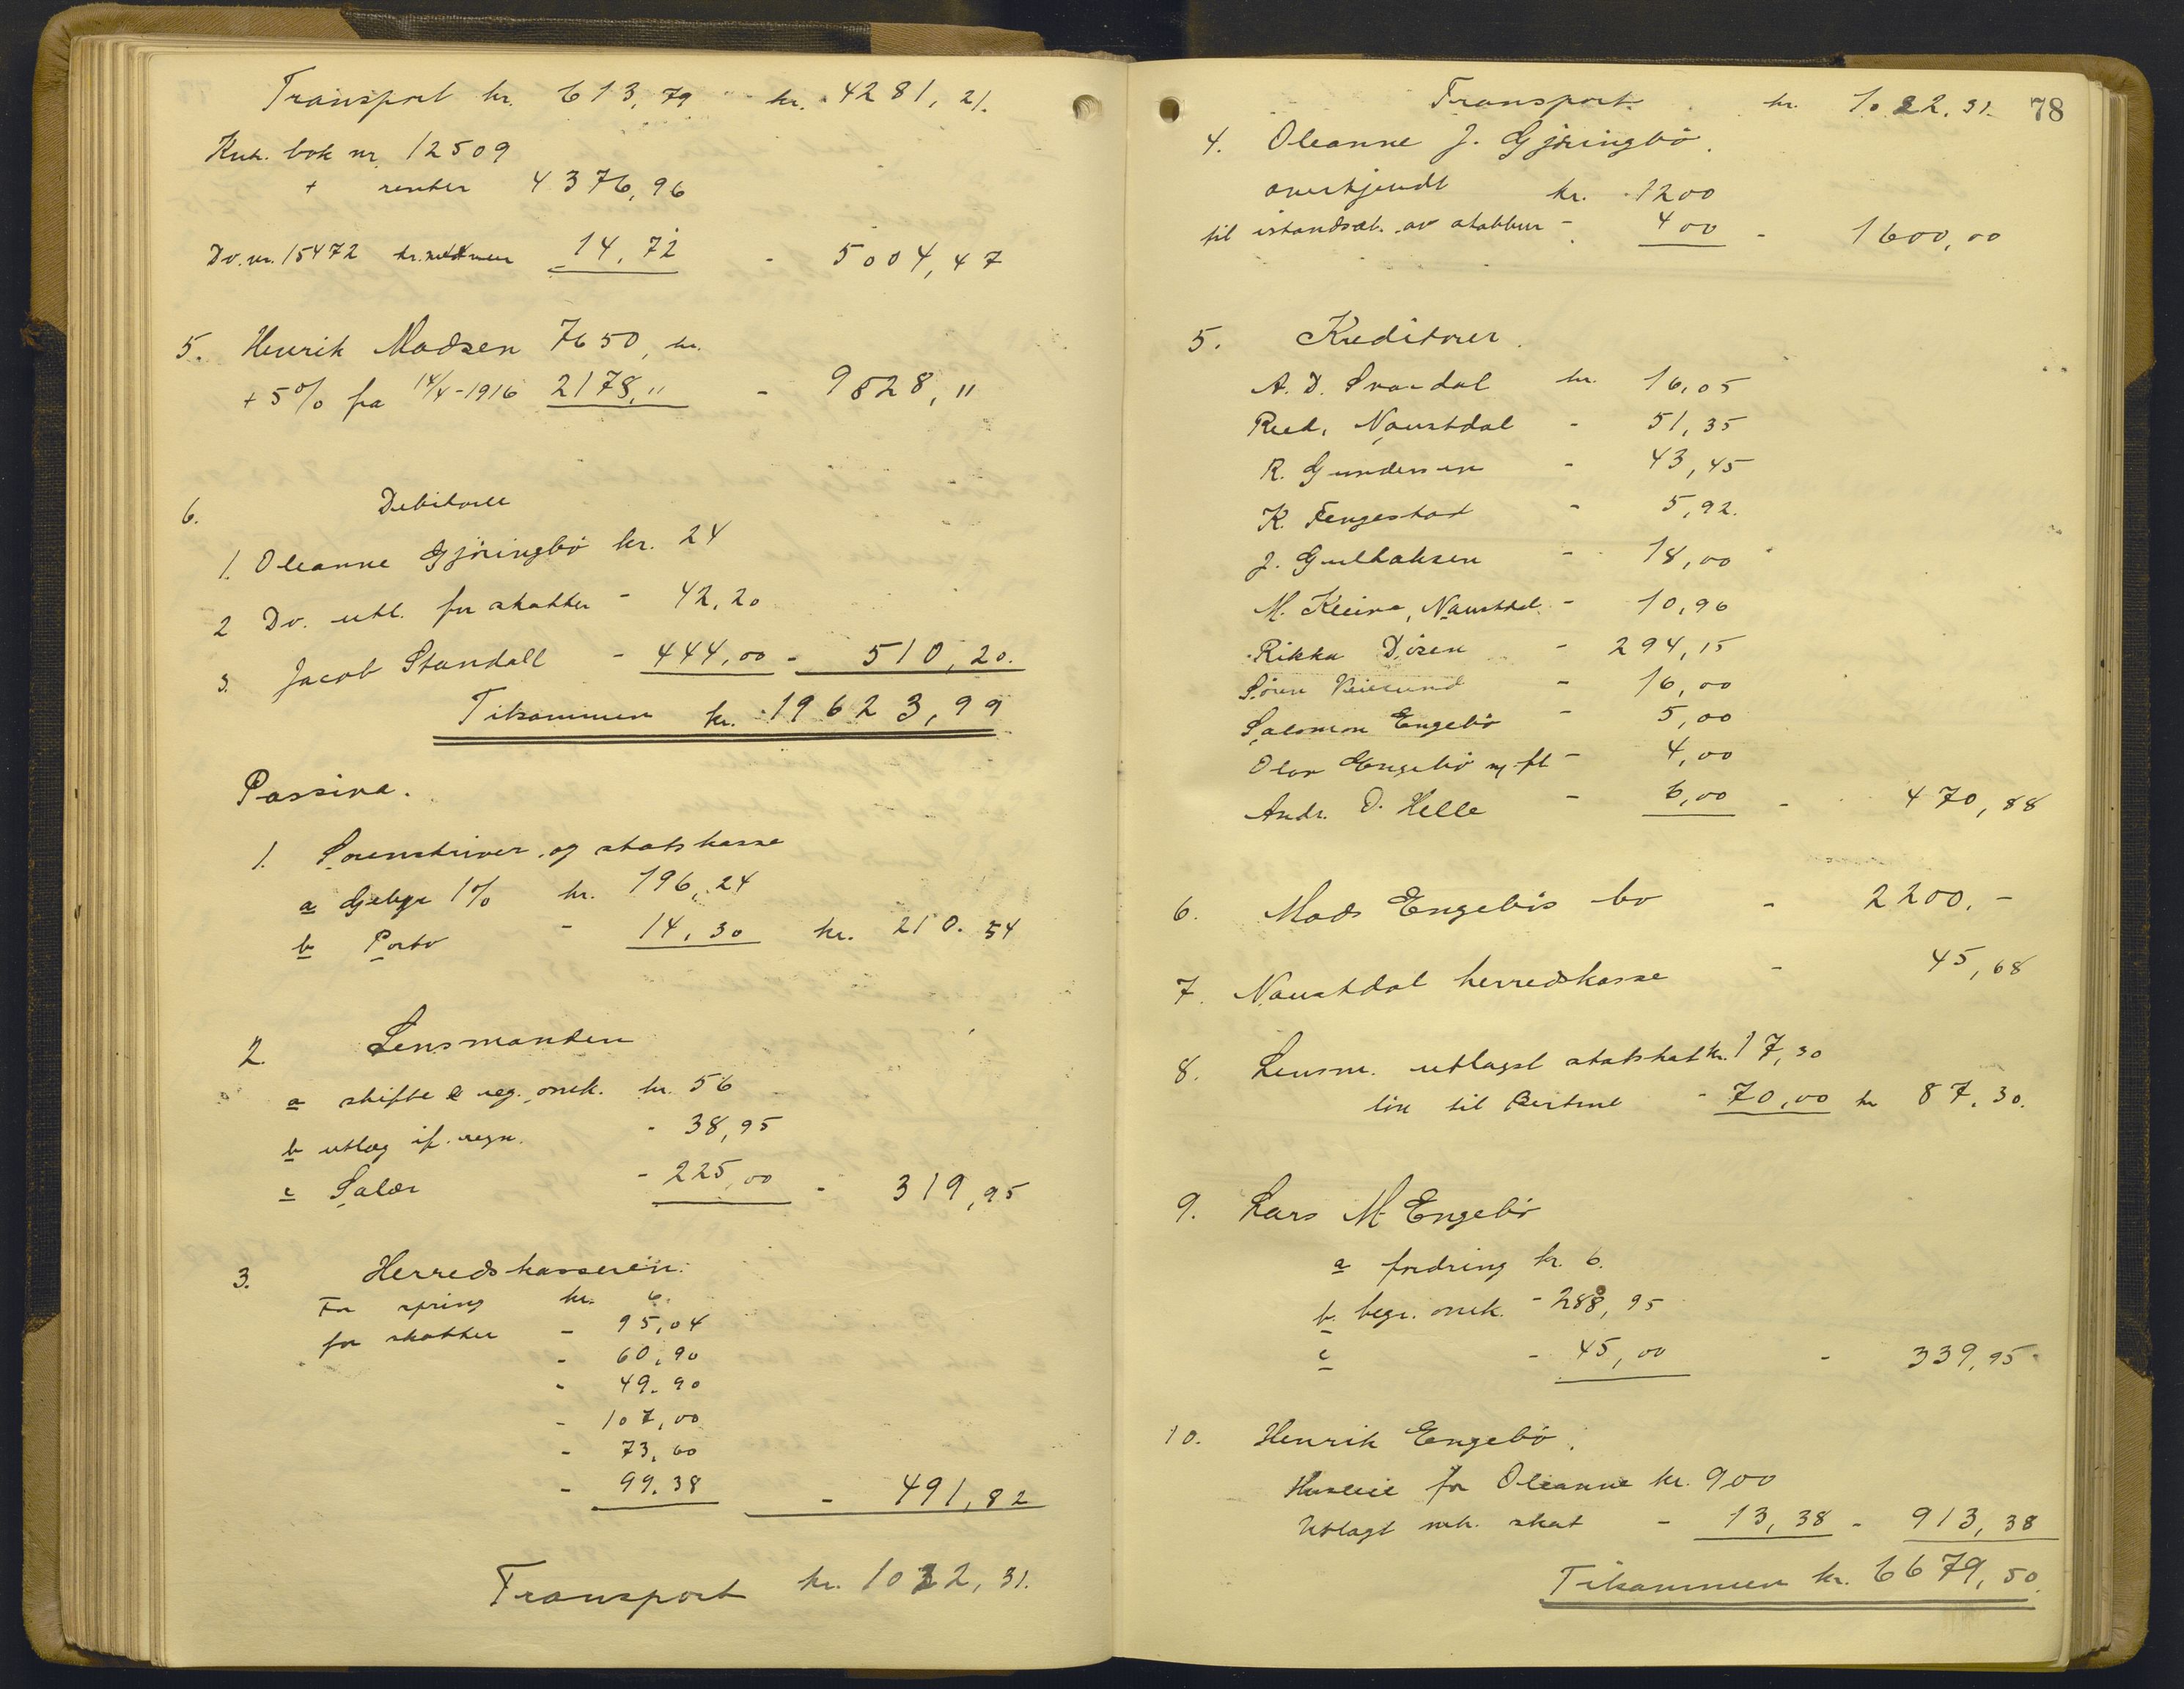 Transport kr. 613,79 kr. 4281,21.
Kntr. bok nr. 12509
+ renter 4376,96
Do. nr. 15472 kr. 14,72 - 5004,47
5. Henrik Madsen 7650, kr.
+ 5% fra 14/4-1916 2178,,, - 9828,,,
6. Debitorer
1. Oleanne Gjöringbö kr. 24
2 Do. utl. for skatter - 42,20
3. Jacob Standall - 444,00 - 510,20.
Tilsammen kr. 19623,99
Passiva.
1. Sorenskriver og statskasse
a Gebyr 1% kr. 196,24
b Porto - 14,30 kr. 210.54
2. Lensmanden
a skifte & reg. omk. kr. 56
b utlæg if. regn. - 38,95
c Salær - 225,00 - 319,95
3. Herredskasseren:
For spring kr. 6.
for skatter - 95,04
- 60,90
- 49.90
- 107,00
- 73,60
- 99.38 - 491,82
Transport kr. 1022,31.
Transport kr. 1022,31. 78
4. Oleanne J. Gjöringbö.
overkjendt kr. 1200
til istandsæt. av stabbur - 400 - 1600,00
5. Kreditorer.
A. D. Svardal kr. 16,05
Rud. Naustdal - 51,35
R. Gundersen - 43,45
K. Fengestad - 5,92.
J. Gulbaksen - 18,00
M. Kleiva, Naustdal. - 10,96
Rikka Disen - 294,15
Sören Veiesund - 16,00
Salomon Engebö - 5,00
Olav Engebö m. fl - 4,00
Andr. O. Helle - 6,00 - 470,88
6. Mads Engebös bo - 2200.-
7. Naustdal herredskasse - 45,68
8. Lensm. utlagt statskat kr. 17,30
lön til Bertine - 70,00 kr 87.30.
9. Lars M. Engebö
a fordring kr. 6.
b. begr. omk. - 288,95
c - 45,00 - 339,95
10. Henrik Engebö.
Husleie for Oleanne kr. 900
Utlagt skat - 13,38 - 913,38
Tilsammen kr. 6679,50.